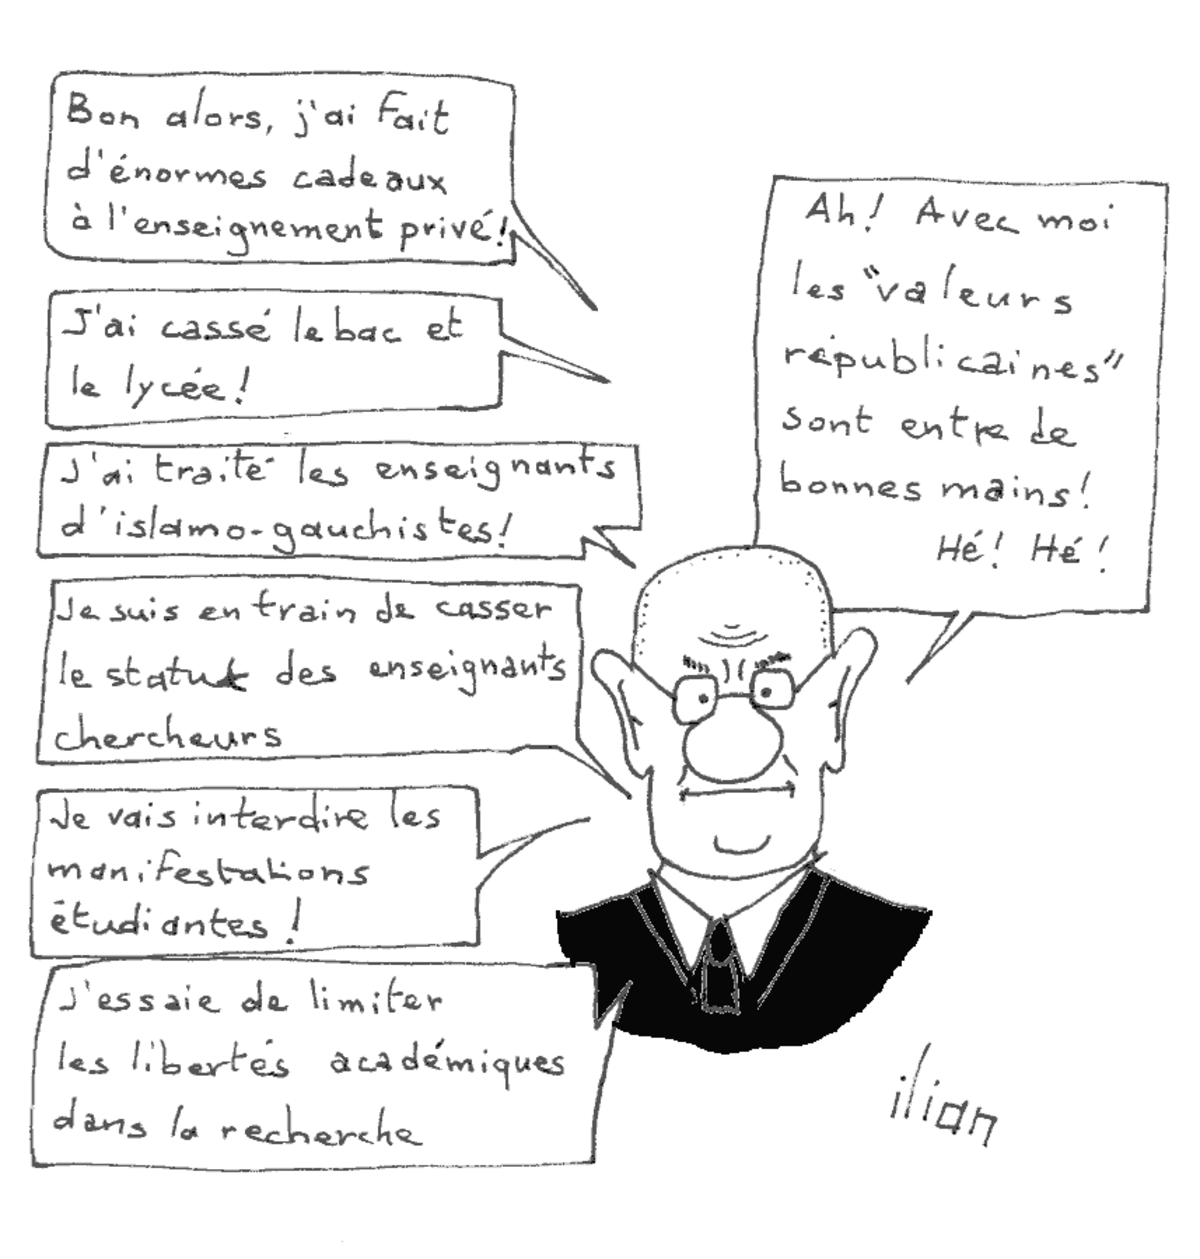 Bon alors, j'ai fait
d'énormes cadeaux
à l'enseignement privé!
J'ai cassé le bac et
le lycée!
J'ai traité les enseignants
d'islamo-gauchistes!
Je suis en train de casser
le statut des enseignants
chercheurs
Je vais interdire les
manifestations
étudiantes!
J'essaie de limiter
les libertés académiques
dans la recherche
Ah! Avec moi
les "valeurs
républicaines"
sont entre de
bonnes mains!
Hé! Hé!
ilian